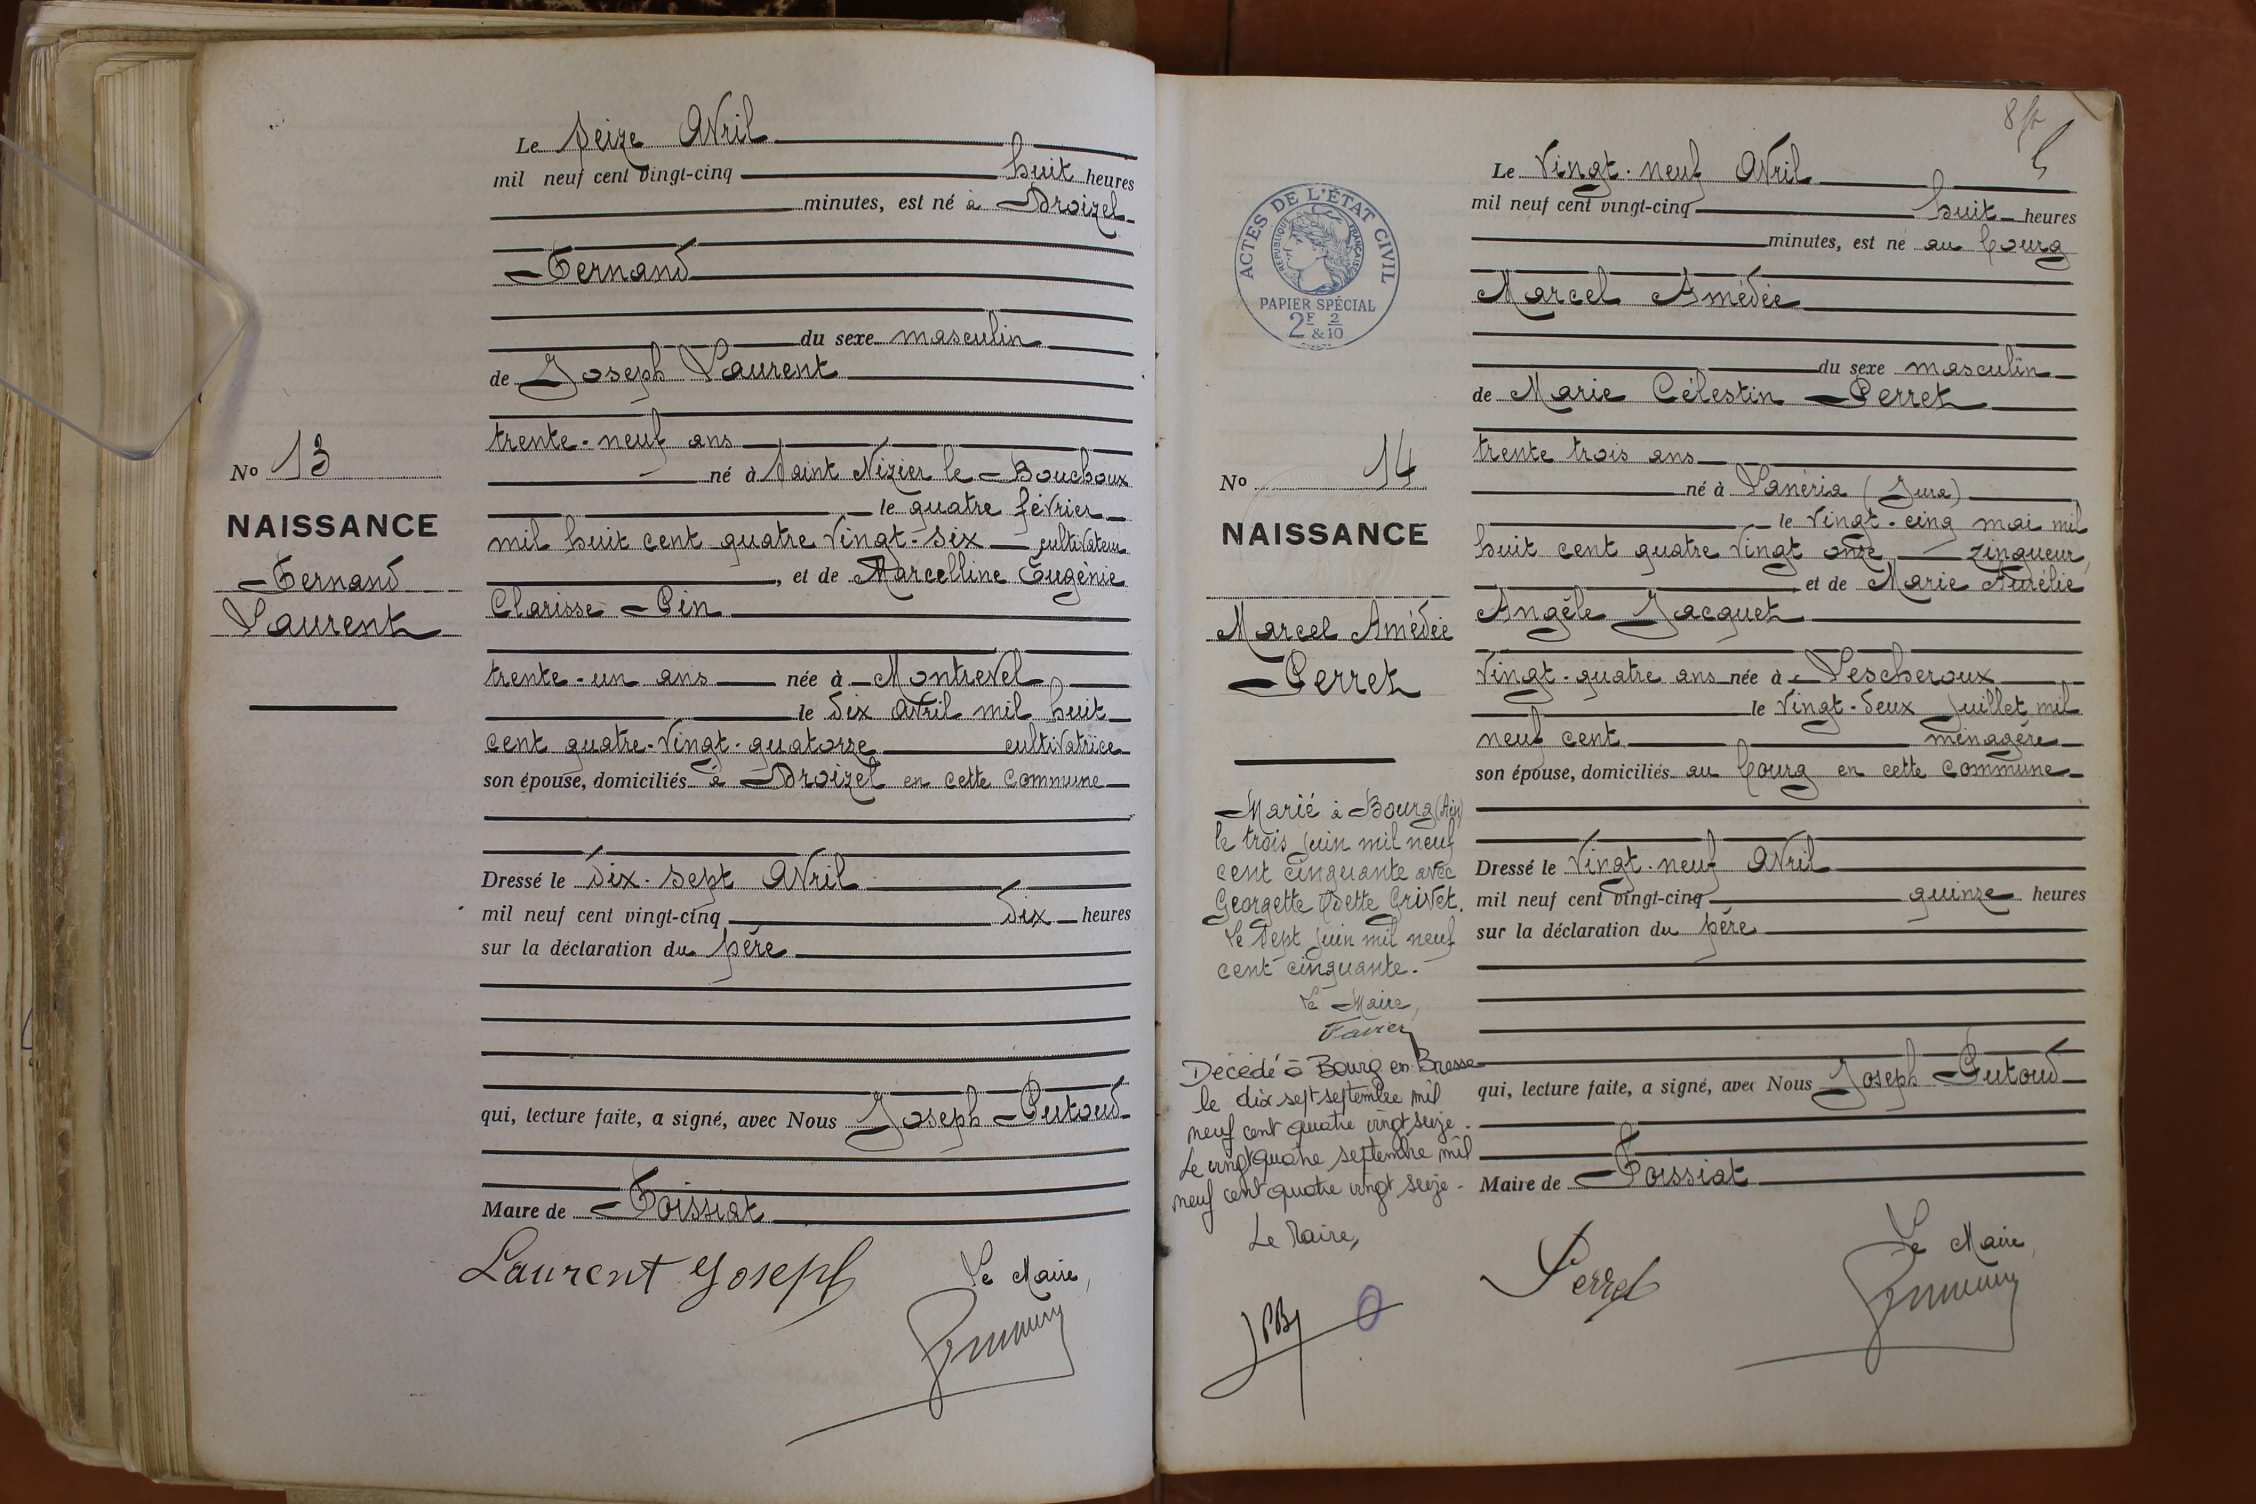 Le seize Avril
mil neuf cent vingt-cinq huit heures
minutes, est né à Broizel
Fernand
du sexe masculin
de Joseph Laurent
trente-neuf ans
né à Saint Nizier le Bouchoux
le quatre février
mil huit cent quatre vingt-six cultivateur
, et de Marcelline Eugénie
Clarisse Pin
trente-un ans née à Montrevel
le dix Avril mil huit
cent quatre-vingt-quatorze cultivatrice
son épouse, domiciliés à Broizel en cette commune
Dressé le dix-sept Avril
mil neuf cent vingt-cinq dix heures
sur la déclaration du père
qui, lecture faite, a signé, avec Nous Joseph Putoud
Maire de Foissiat
Laurent Joseph
Le Maire,
No 13
NAISSANCE
Fernand
Laurent
8
5
ACTES DE L'ÉTAT CIVIL
RÉPUBLIQUE FRANÇAISE
PAPIER SPÉCIAL
2F & 2/10
No 14
NAISSANCE
Marcel Amédée
Perret
Marié à Bourg (Ain)
le trois juin mil neuf
cent cinquante avec
Georgette Odette Grivet.
Le sept juin mil neuf
cent cinquante.
Le Maire,
Favier
Décédé à Bourg en Bresse
le dix sept septembre mil
neuf cent quatre vingt seize.
Le vingt quatre septembre mil
neuf cent quatre vingt seize.
Le Maire,
Le Vingt-neuf Avril
mil neuf cent vingt-cinq huit heures
minutes, est né au bourg
Marcel Amédée
du sexe masculin
de Marie Célestin Perret
trente trois ans
né à Lanéria (Jura)
le vingt-cinq mai mil
huit cent quatre vingt onze zingueur,
et de Marie Aurélie
Angèle Jacquet
vingt-quatre ans née à Lescheroux
le vingt-deux juillet mil
neuf cent ménagère
son épouse, domiciliés au bourg en cette commune
Dressé le vingt-neuf Avril
mil neuf cent vingt-cinq quinze heures
sur la déclaration du père
qui, lecture faite, a signé, avec Nous Joseph Putoud
Maire de Foissiat
Perret
Le Maire,